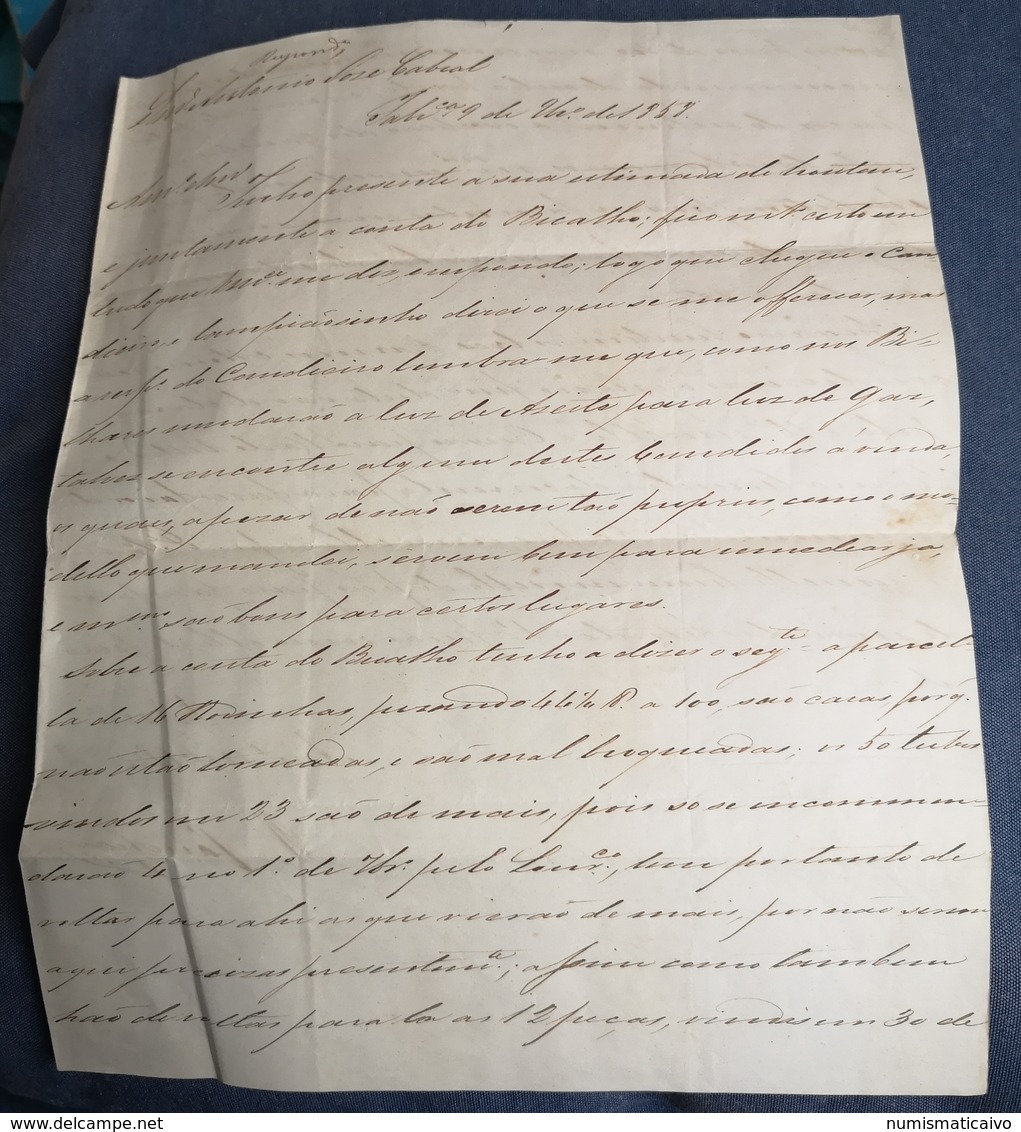 Respond.ª
José Cabral
Fab.ca 9 de 7br.º de 1853.
Am.º e Snr.
Tenho presente a sua estimada de hontem,
e juntamente a conta do Bicalho; fico m.to certo em
tudo que Vm.ce me diz, e respondo; logo que chegue o Can-
dieiro, e lampiãosinho direi o que se me offerecer, mas
a resp.º do Candieiro lembra-me que, como nos Bi-
lhares mudarão a luz de Aseite para luz de gaz,
talvez se encontre algum destes Candides á venda,
os quaes, apezar de não serem tão proprios, como o mo-
dello que mandei, servem bem para
e m.mo são bons para certos lugares.
Sobre a conta do Bicalho tenho a diser o seg.te - a parcel-
la de 16 Roinhas, pezando 44½ P. a 100, são caras, porq.
não estão torneadas, e são mal broqueadas; os 50 tubos
vindos em 23 são de mais, pois so se encommen-
darão 4 no 1.º de 7br.º pelo Lour.ço, tem portanto de
voltar para ahi os que vierão de mais, por não serem
aqui precizos presentem.te; assim como tambem
hão de voltar para la as 12 peças, vindas em 30 de
numismaticaivo